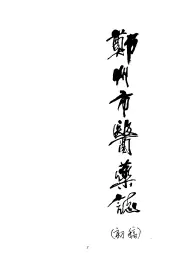 鄭州市醫藥誌
(初稿)